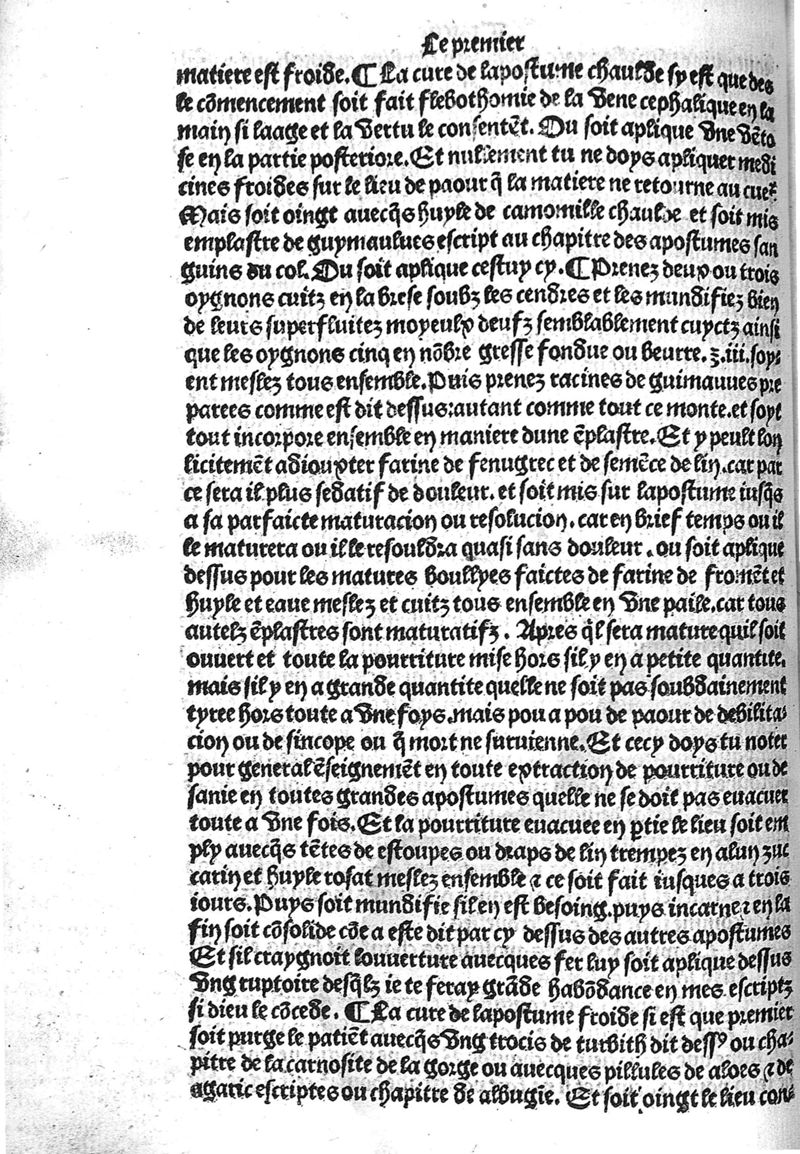 Le premier
matiere est froide. ¶ La cure de lapostume chaulde sy est que des
le cōmencement soit fait flebothomie de la vene cephalique en la
main si laage et la vertu le consentēt. Ou soit aplique vne vēto
se en la partie posteriore. Et nullement tu ne doys apliquer medi
cines froides sur le lieu de paour q̄ la matiere ne retourne au cuer
Mais soit oingt auecq̄s huyle de camomille chaulde et soit mis
emplastre de guymaulues escript au chapitre des apostumes san
guins du col. Ou soit aplique cestuy cy. ¶ Prenez deux ou trois
oygnons cuitz en la brese soubz les cendres et les mundifiez bien
de leurs superfluitez moyeulx deufz semblablement cuyctz ainsi
que les oygnons cinq en nōbre gresse fondue ou beurre. ʒ. iii. soy
ent meslez tous ensemble. Puis prenez racines de guimauues pre
parees comme est dit dessus: autant comme tout ce monte. et soyt
tout incorpore ensemble en maniere dune ēplastre. Et y peult lon
licitemēt adiouxter farine de fenugrec et de semēce de lin. car par
ce sera il plus sedatif de douleur. et soit mis sur lapostume iusq̄s
a sa parfaicte maturacion ou resolucion. car en brief temps ou il
le maturera ou il le resouldra quasi sans douleur. ou soit aplique
dessus pour les matures boullyes faictes de farine de fromēt et
huyle et eaue meslez et cuitz tous ensemble en vne paile. car tous
autelz ēplastres sont maturatifz. Apres q̄l sera mature quil soit
ouuert et toute la pourriture mise hors sil y en a petite quantite.
mais sil y en a grande quantite quelle ne soit pas soubdainement
tyree hors toute a vne foys. mais pou a pou de paour de debilita-
cion ou de sincope ou q̄ mort ne suruienne. Et cecy doys tu noter
pour general ēseignemēt en toute extraction de pourriture ou de
sanie en toutes grandes apostumes quelle ne se doit pas euacuer
toute a vne fois. Et la pourriture euacuee en ꝑtie le lieu soit em
ply auecq̄s tētes de estoupes ou draps de lin trempez en alun zuc
carin et huyle rosat meslez ensemble ⁊ ce soit fait iusques a trois
iours. Puys soit mundifie sil en est besoing. puys incarne ⁊ en la
fin soit cōsolide cōe a este dit par cy dessus des autres apostumes
Et sil craygnoit louuerture auecques fer luy soit aplique dessus
vng ruptoire desq̄lz ie te feray grāde habōdance en mes escriptz
si dieu le cōcede. ¶ La cure de lapostume froide si est que premier
soit purge le patiēt auecq̄s vng trocis de turbith dit dessꝰ ou cha-
pitre de la carnosite de la gorge ou auecques pillules de aloes ⁊ de
agaric escriptes ou chapitre de albugīe. Et soit oingt le lieu con-